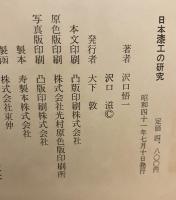 日本漆工の研究
定価 四、八〇〇円
昭和四十一年七月十日発行
著者 沢口悟一
沢口滋©
発行者 大下敦
本文印刷 凸版印刷株式会社
原色版印刷 株式会社光村原色版印刷所
写真版印刷 凸版印刷株式会社
製本 寿製本株式会社
製函 株式会社東仲